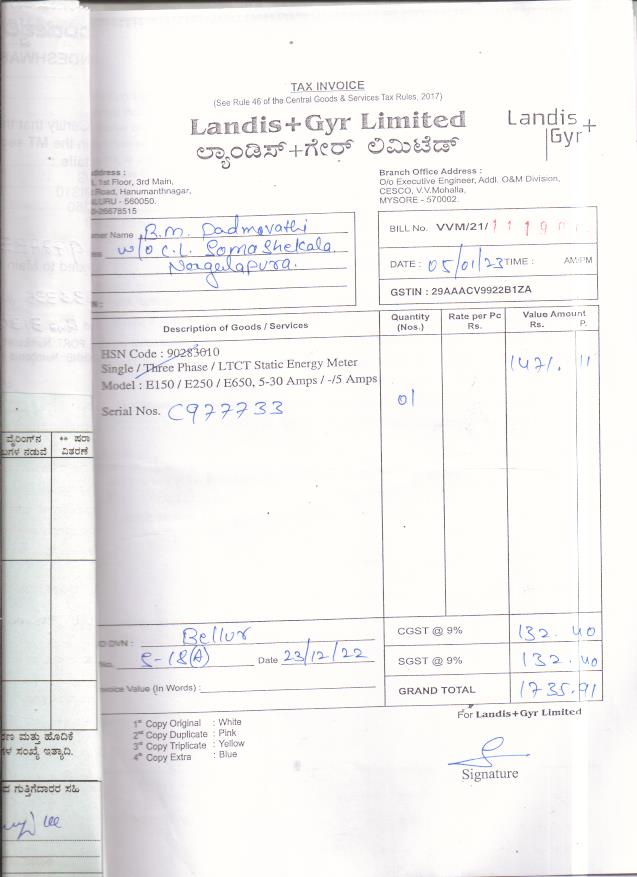 TAX INVOICE
(See Rule 46 of the Central Goods & Services Tax Rules, 2017)
Landis+Gyr Limited
ಲ್ಯಾಂಡಿಸ್+ಗೇರ್ ಲಿಮಿಟೆಡ್
Landis
Gyr+
ddress :
1st Floor, 3rd Main,
Road, Hanumanthnagar,
LURU - 560050.
-26678515
Branch Office Address :
O/o Executive Engineer, Addl. O&M Division,
CESCO, V.V.Mohalla,
MYSORE - 570002.
mer Name B.M. Padmavathi
w/o C.L. Somashekala
BILL No. VVM/21/ 1190
DATE : 05/01/23 TIME : AM/PM
GSTIN : 29AAACV9922B1ZA
Description of Goods / Services
Quantity (Nos.)
Rate per Pc Rs.
Value Amount
Rs. P.
HSN Code : 90283010
Single / Three Phase / LTCT Static Energy Meter
Model : E150 / E250 / E650, 5-30 Amps / -/5 Amps
Serial Nos. C977733
01
1471. 11
DVN : Bellur
No. S-18(A) Date 23/12/22
voice Value (In Words) :
CGST @ 9% 132. 40
SGST @ 9% 132. 40
GRAND TOTAL 1735.91
For Landis+Gyr Limited
1st Copy Original : White
2nd Copy Duplicate : Pink
3rd Copy Triplicate : Yellow
4th Copy Extra : Blue
Signature
ವೈರಿಂಗ್‌ನ
ಗಳ ನಡುವೆ
** ಷರಾ
ವಿತರಣೆ
ರಣ ಮತ್ತು ಹೊದಿಕೆ
ಗಳ ಸಂಖ್ಯೆ ಇತ್ಯಾದಿ.
ದ ಗುತ್ತಿಗೆದಾರರ ಸಹಿ